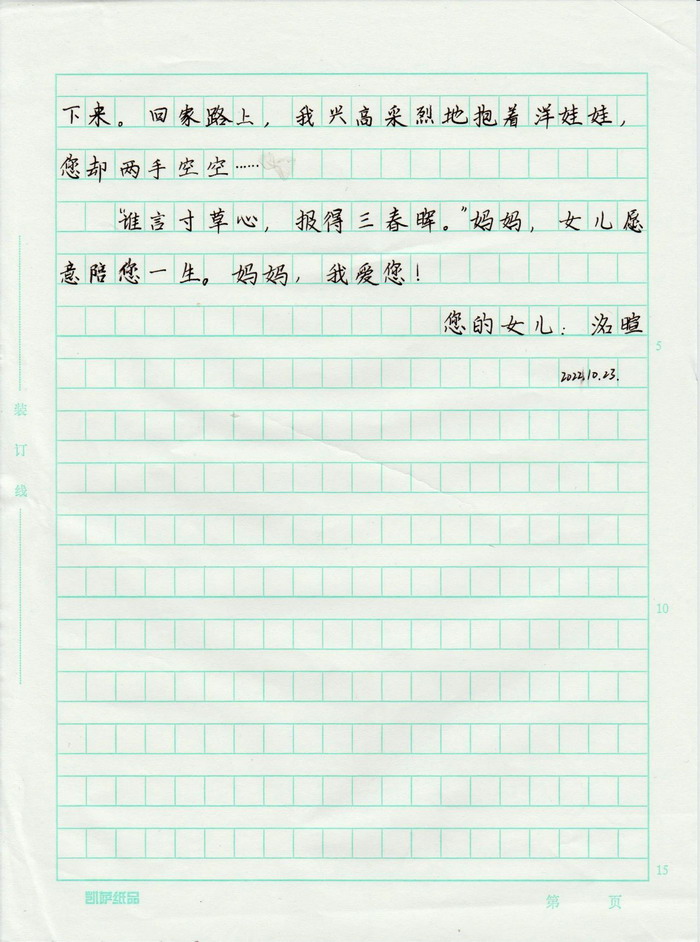 下来。回家路上，我兴高采烈地抱着洋娃娃，
您却两手空空……
“谁言寸草心，报得三春晖。”妈妈，女儿愿
意陪您一生。妈妈，我爱您！
您的女儿：洺暄
5
2022.10.23.
装
订
线
10
15
凯萨纸品
第 页